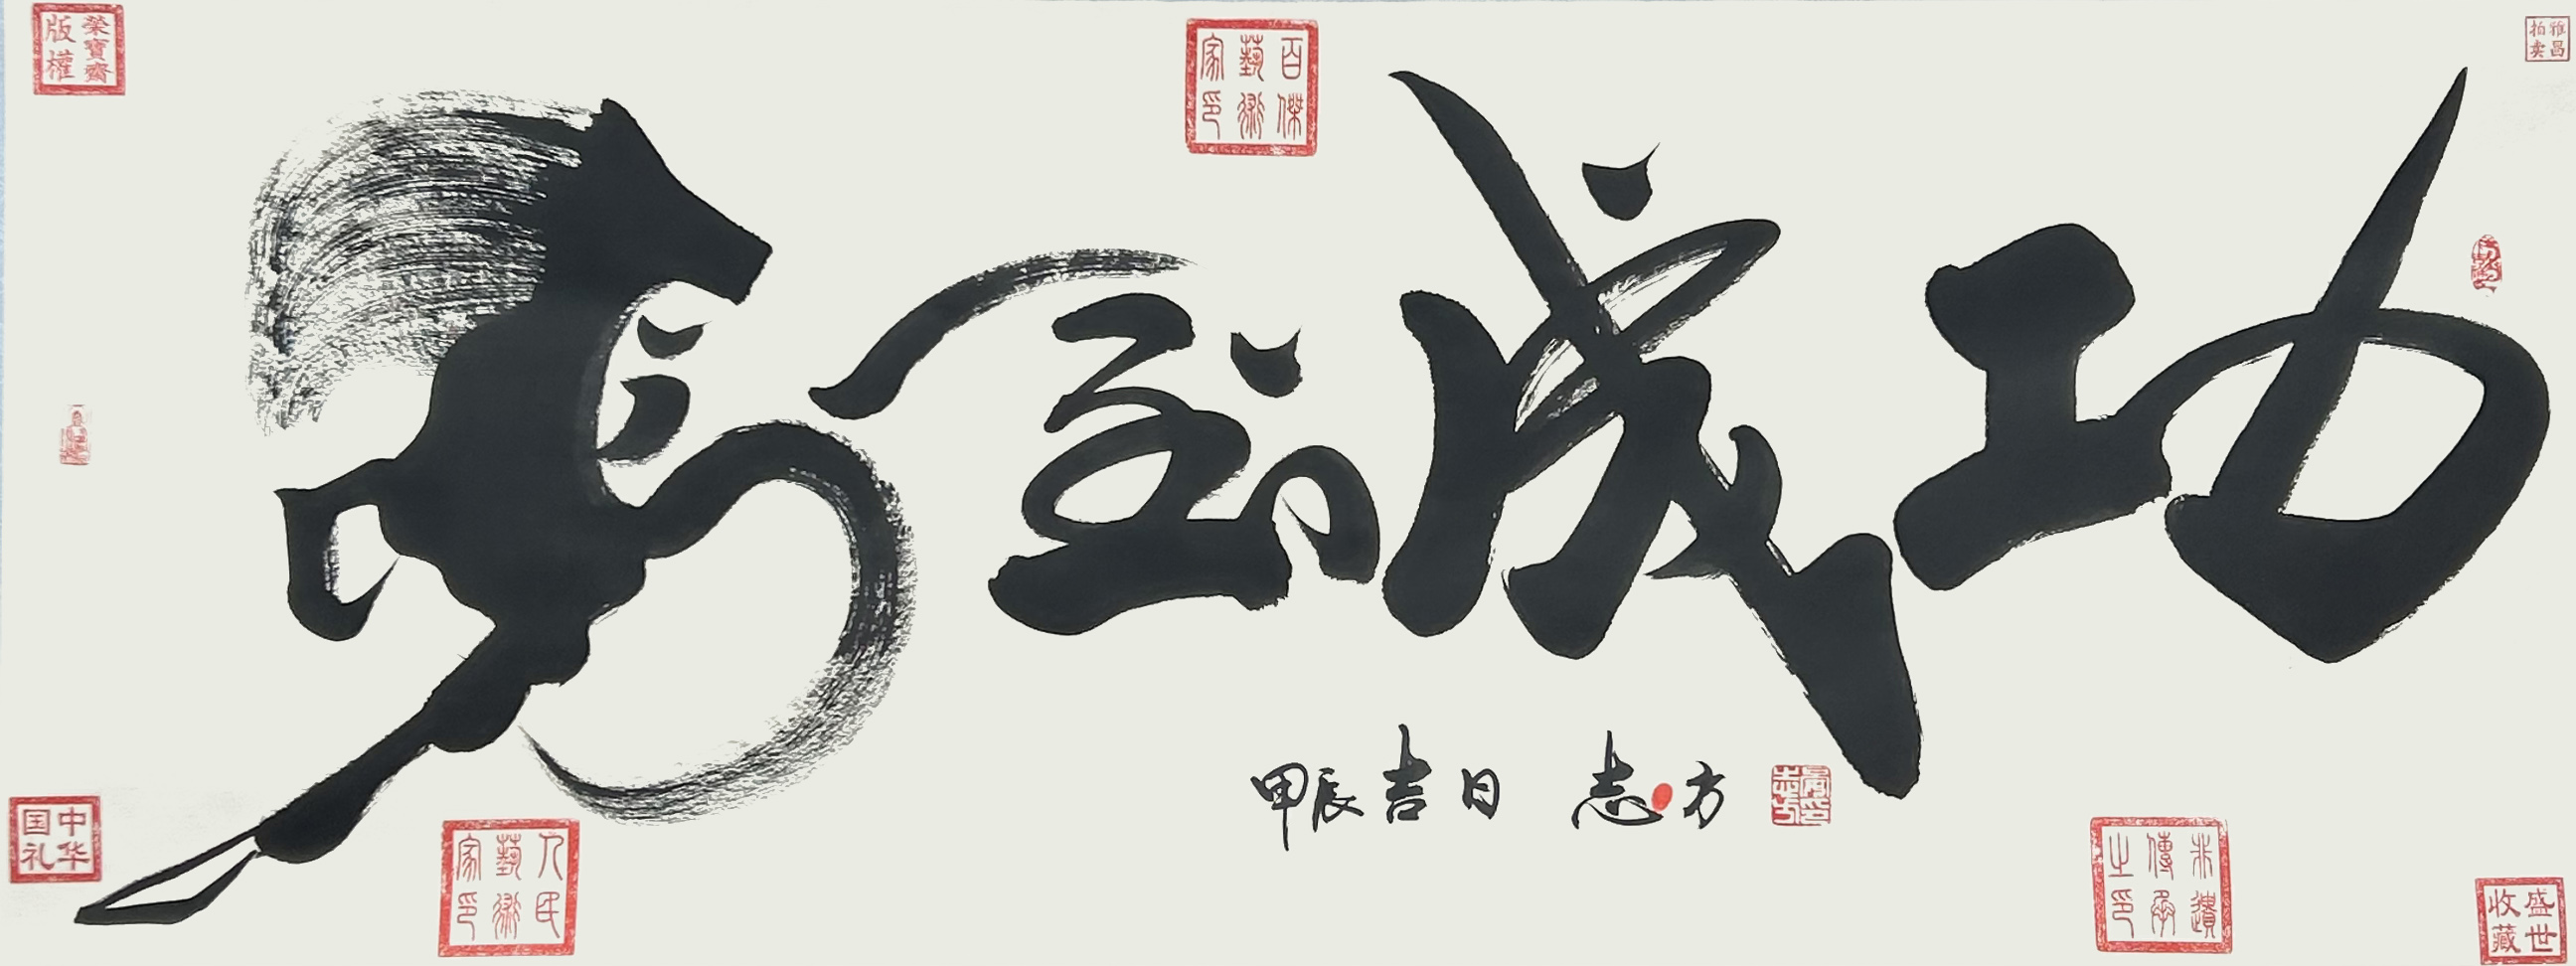 榮寶齋版權
百傑藝術家印
雅昌拍卖
馬到成功
甲辰吉日 志方
中华国礼
人民藝術家印
非遺傳承之印
盛世收藏